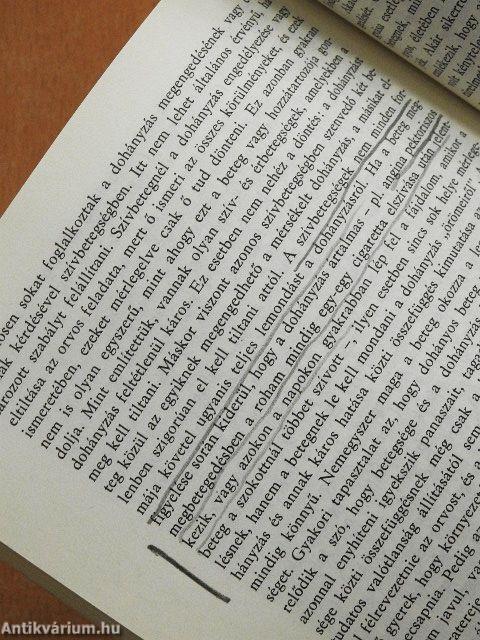 ösen sokat foglalkoztak a dohányzás megengedésének vagy
k kérdésével szívbetegségben. Itt nem lehet általános érvényű,
ározott szabályt felállítani. Szívbetegnél a dohányzás engedélyezése vagy
eltiltása az orvos feladata, mert ő ismeri az összes körülményeket, és ezek
ismeretében, ezeket mérlegelve csak ő tud dönteni. Ez azonban gyakran
nem is olyan egyszerű, mint ahogy ezt a beteg vagy hozzátartozója gon-
dolja. Mint említettük, vannak olyan szív- és érbetegségek, amelyekben a
dohányzás feltétlenül káros. Ez esetben nem nehéz a döntés; a dohányzást
meg kell tiltani. Máskor viszont azonos szívbetegségben szenvedő két be-
teg közül az egyiknek megengedhető a mérsékelt dohányzás, a másikat el-
lenben szigorúan el kell tiltani attól. A szívbetegségek nem minden for-
mája követel ugyanis teljes lemondást a dohányzásról. Ha a beteg meg-
figyelése során kiderül, hogy a dohányzás ártalmas – pl. angina pektorisos
megbetegedésben a roham mindig egy-egy cigaretta elszívása után jelent-
kezik, vagy azokon a napokon gyakrabban lép fel a fájdalom, amikor a
beteg a szokottnál többet szívott –, ilyen esetben sincs sok helye mérlege-
lésnek, hanem a betegnek le kell mondani a dohányzás „örömeiről"
hányzás és annak káros hatása közti összefüggés kimutatása az
mindig könnyű. Nemegyszer maga a beteg okozza a
séget. Gyakori tapasztalat az, hogy dohányos beteg
refődik a szó, hogy betegsége és a dohányzás
azonnal enyhíteni igyekszik panaszait,
sége közti összefüggésnek még csak a
datos valótlanság állításától sem
l félrevezetnie az orvost, és a
kyerék, hogy környezet
csapnia. Pedig
javul, va